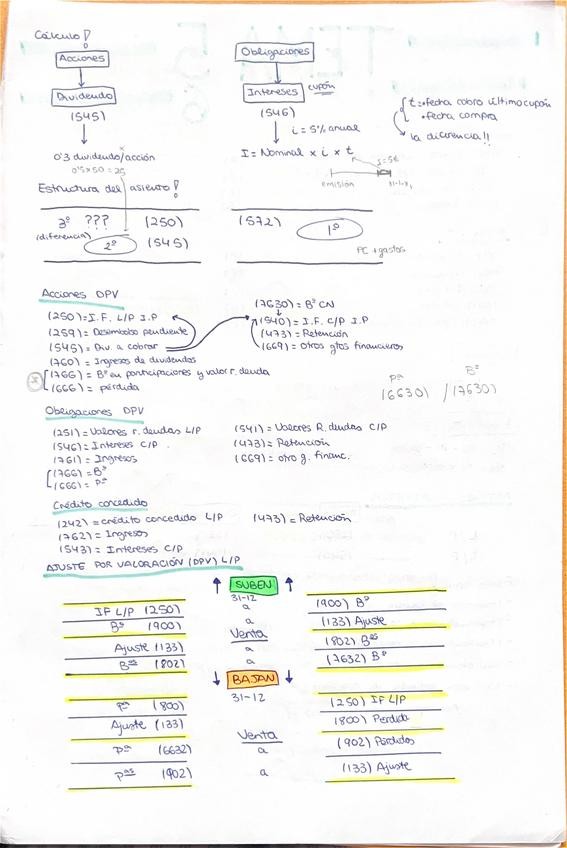 Cálculo!
Acciones
Dividendo
(545)
0'3 dividendo/acción
0'5 x 50 = 25
Estructura del asiento!
3º ??? (250)
(diferencia) 2º (545)
Obligaciones
Intereses cupón
(546)
i = 5% anual
I = Nominal x i x t
emisión
(572) 1º
PC + gastos
t = • fecha cobro último cupón
• fecha compra
la diferencia!!
Acciones DPV
(250) = I.F. L/P I.P
(259) = Desembolso pendiente
(545) = Div. a cobrar
(760) = Ingresos de dividendos
(766) = Bº en participaciones y valor r. deuda
(666) = pérdida
(7630) = Bº CN
(540) = I.F. C/P I.P
(473) = Retención
(669) = Otros gtos financieros
Pª (6630) / Bº (7630)
Obligaciones DPV
(251) = Valores r. deudas L/P
(546) = Intereses C/P.
(761) = Ingresos
(766) = Bº
(666) = Pª
(541) = Valores R. deudas C/P
(473) = Retención
(669) = otro g. financ.
Crédito concedido
(242) = crédito concedido L/P
(762) = Ingresos
(543) = Intereses C/P
(473) = Retención
AJUSTE POR VALORACIÓN (DPV) L/P
SUBEN
31-12
IF L/P (250) a (900) Bº
Bº (900) a (133) Ajuste
Venta
Ajuste (133) a (802) Bºs
Bºs (802) a (7632) Bº
BAJAN
31-12
Pª (800) (250) IF L/P
Ajuste (133) (800) Perdida
Venta
Pª (6632) a (902) Pérdidas
Pªs (902) a (133) Ajuste